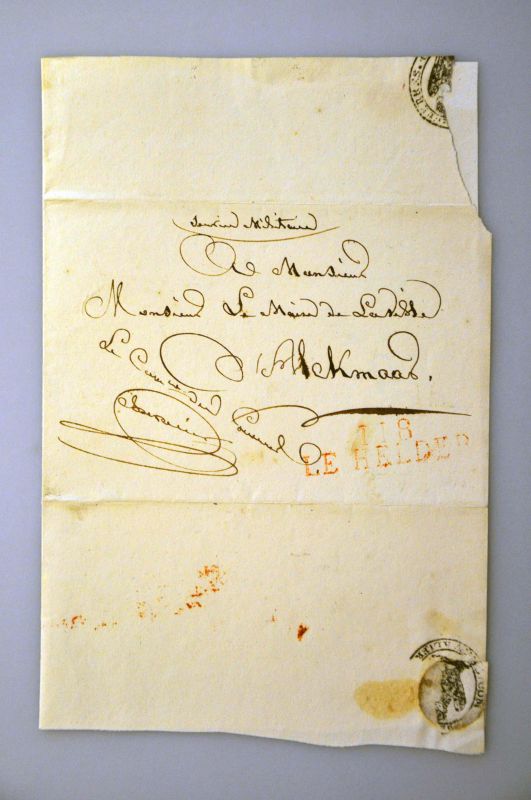 Service Militaire
A Monsieur
Monsieur Le Maire de La Ville
D'Alckmaar.
Le
118
LE HELDER